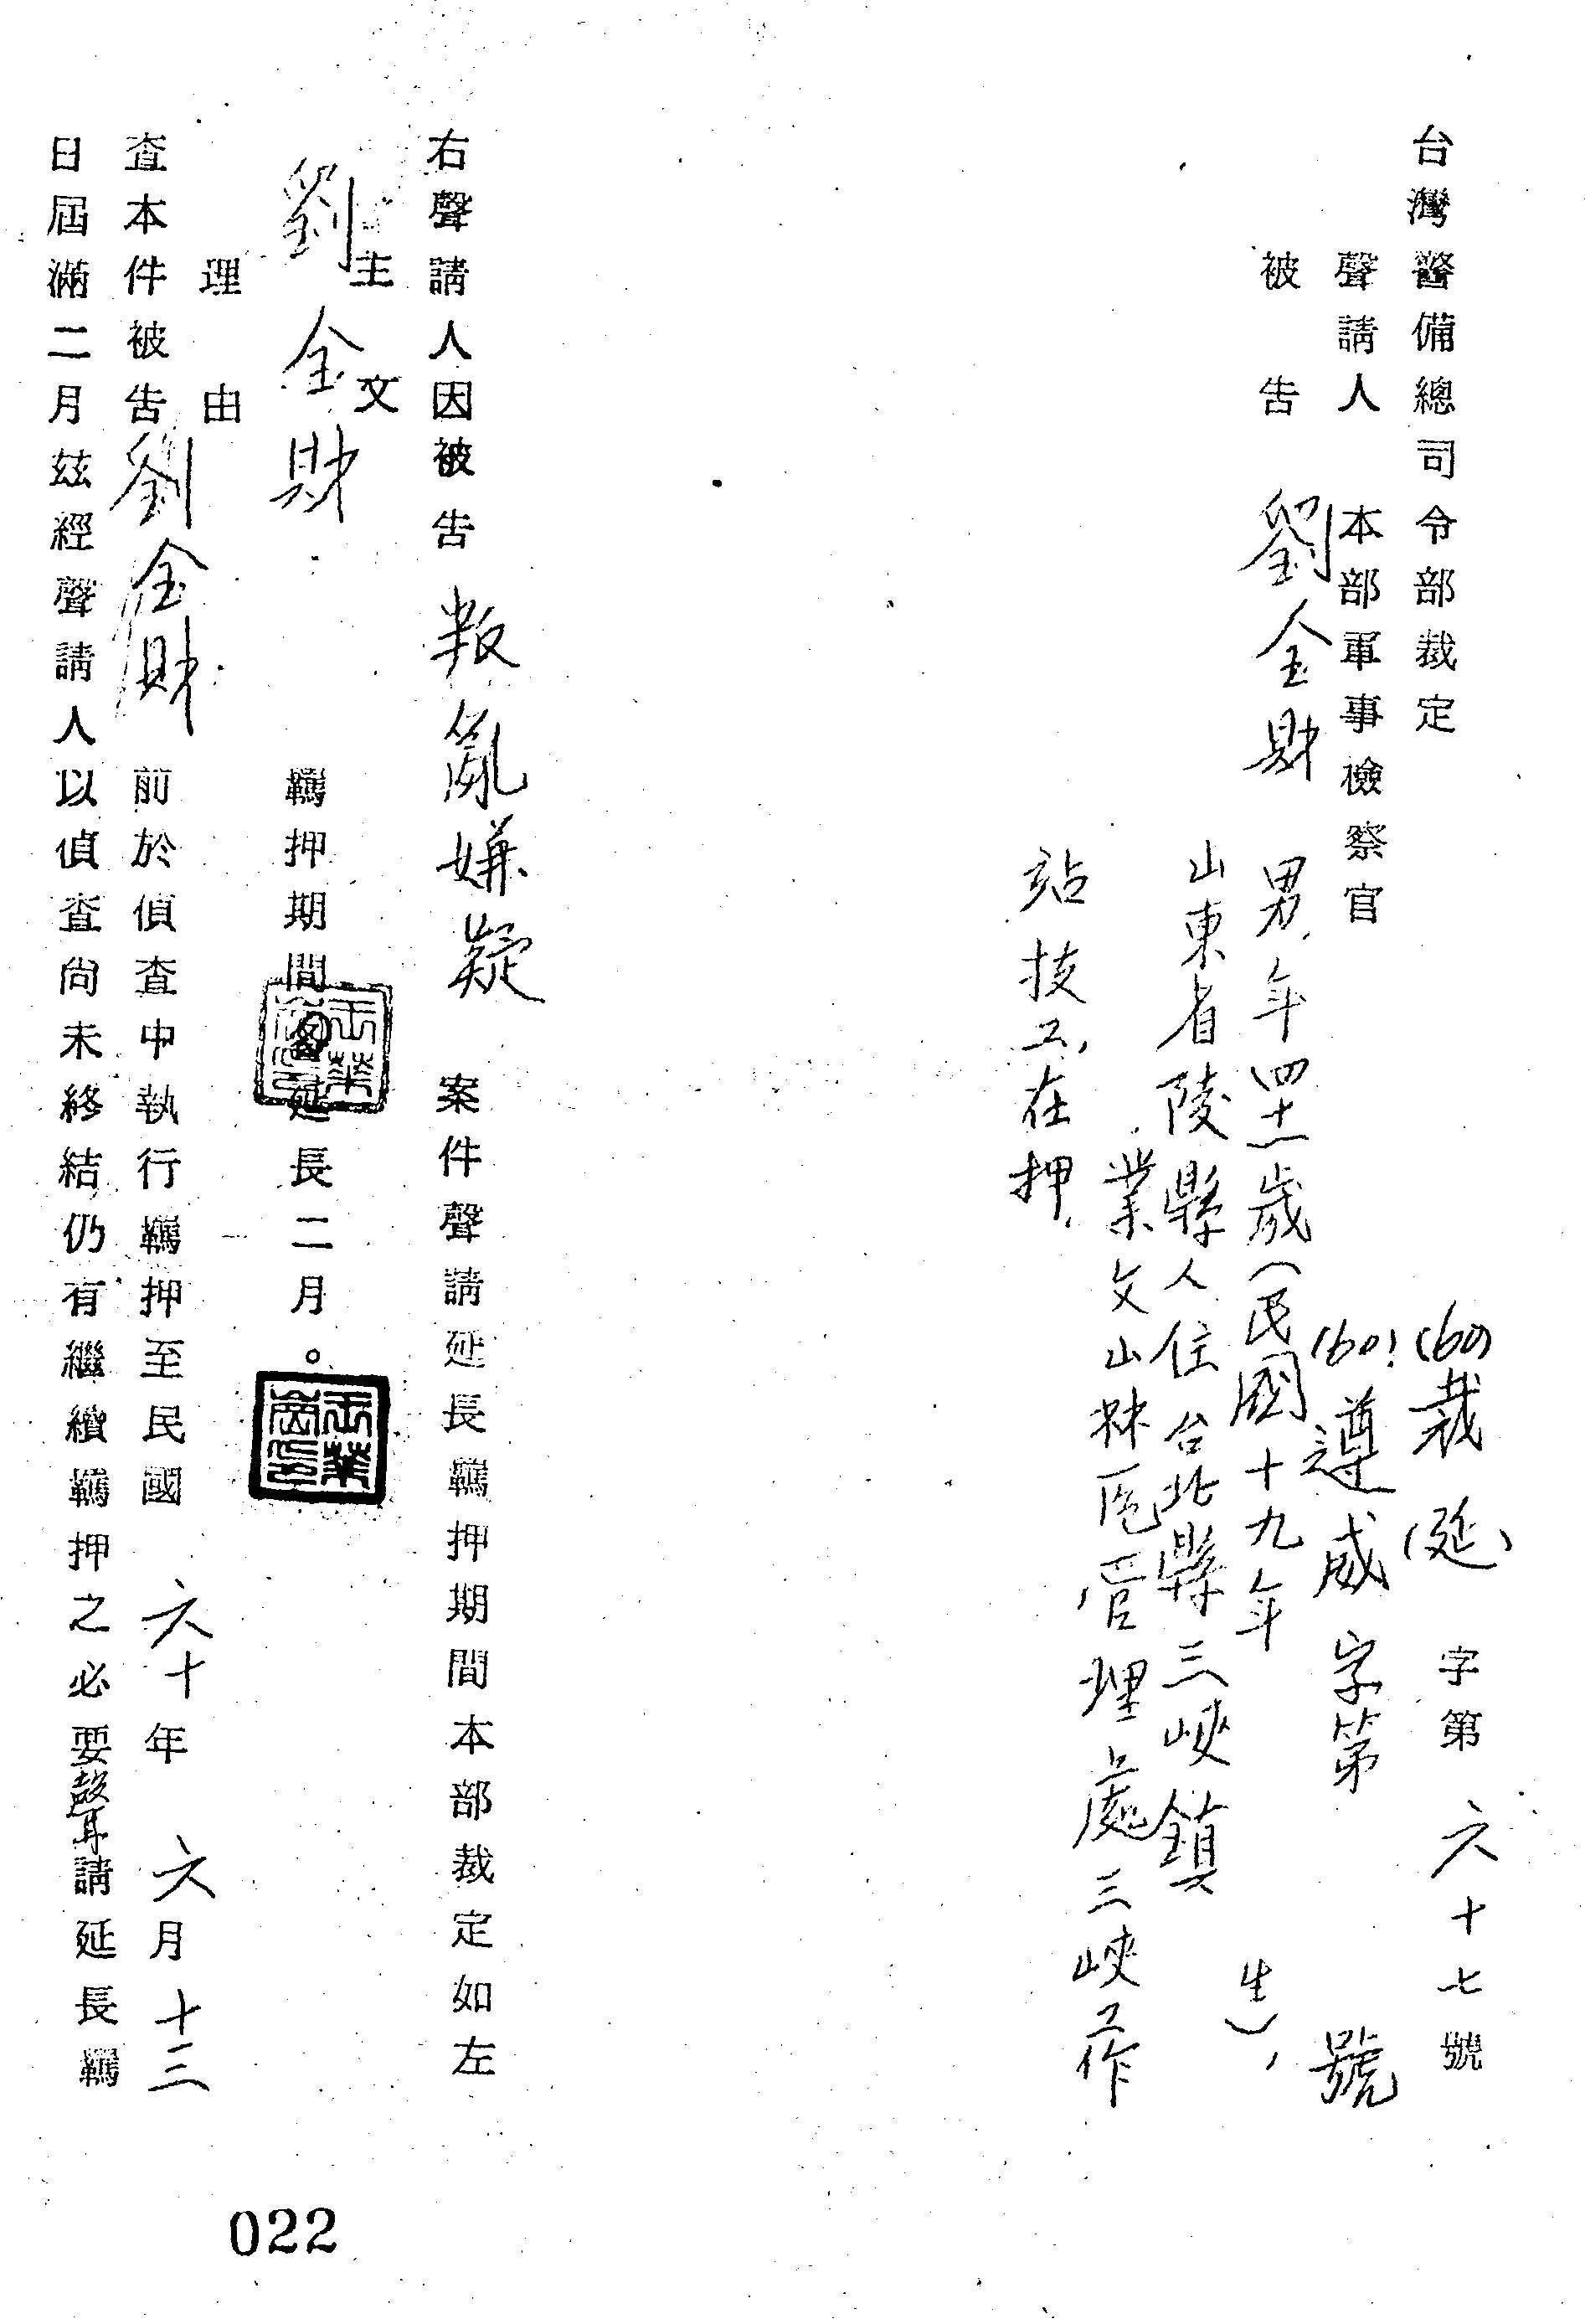 台灣警備總司令部裁定 (60)裁(延)字第六十七號
(60)遵威字第 號
聲請人 本部軍事檢察官
被告 劉金財 男，年四十一歲（民國十九年 生），
山東省陵縣人住台北縣三峽鎮
業文山林區管理處三峽工作
站技工，在押。
右聲請人因被告 叛亂嫌疑 案件聲請延長羈押期間本部裁定如左
主文
劉金財 羈押期間 延長二月。
理由
查本件被告劉金財 前於偵查中執行羈押至民國 六十年 六月十三
日屆滿二月茲經聲請人以偵查尚未終結仍有繼續羈押之必要聲請延長羈
022